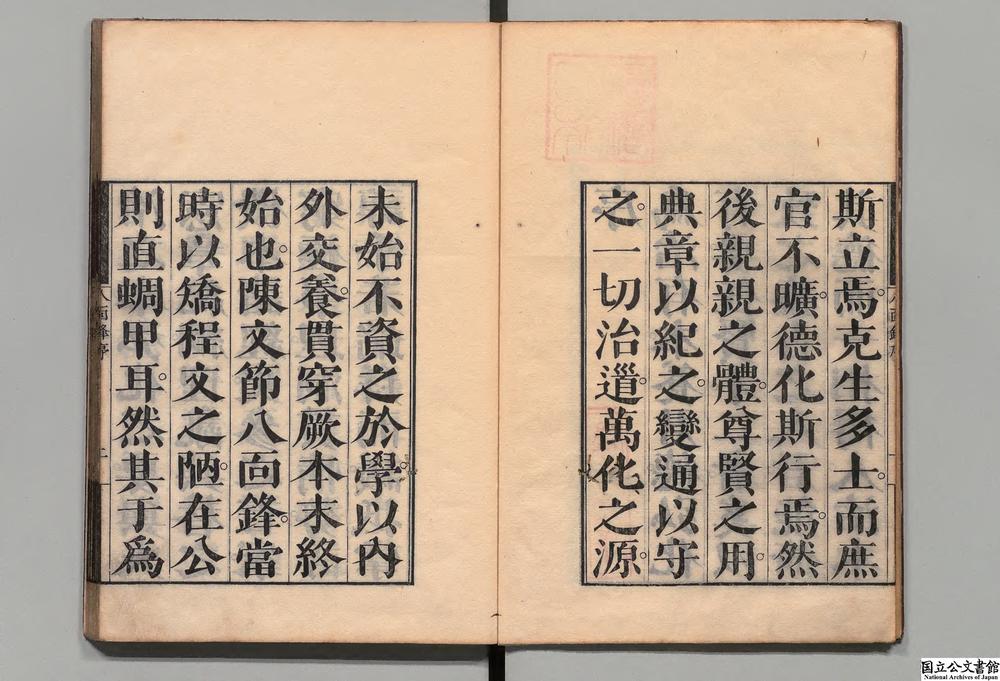 斯立焉。克生多士。而庶
官不曠。德化斯行焉。然
後親親之體。尊賢之用。
典章以紀之。變通以守
之。一切治道。萬化之源。
未始不資之於學。以內
外交養。貫穿厥本末終
始也。陳文節八面鋒。當
時以矯程文之陋。在公
則直蜩甲耳。然其于爲
八面鋒序
国立公文書館
National Archives of Japan